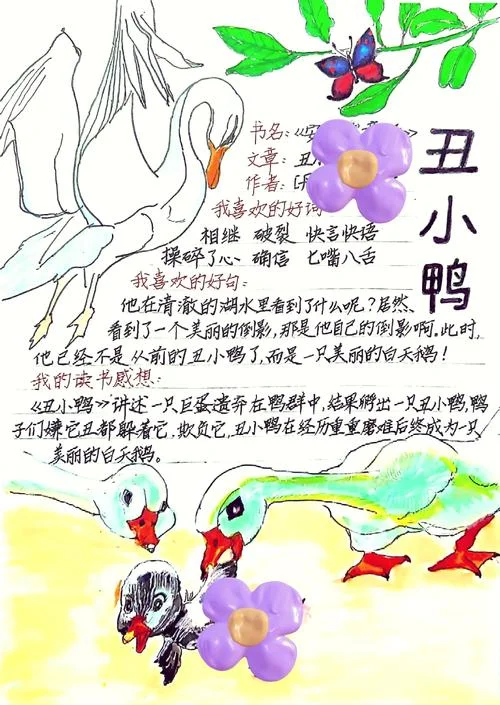 丑小鸭
书名:《安
文章:丑
作者:[丹
我喜欢的好词
相继 破裂 快言快语
操碎了心 确信 七嘴八舌
我喜欢的好句:
他在清澈的湖水里看到了什么呢?居然、
看到了一个美丽的倒影,那是他自己的倒影啊.此时,
他已经不是从前的丑小鸭了,而是一只美丽的白天鹅!
我的读书感想:
《丑小鸭》讲述一只巨蛋遗弃在鸭群中,结果孵出一只丑小鸭,鸭
子们嫌它丑都躲着它,欺负它,丑小鸭在经历重重磨难后终成为一只
美丽的白天鹅。